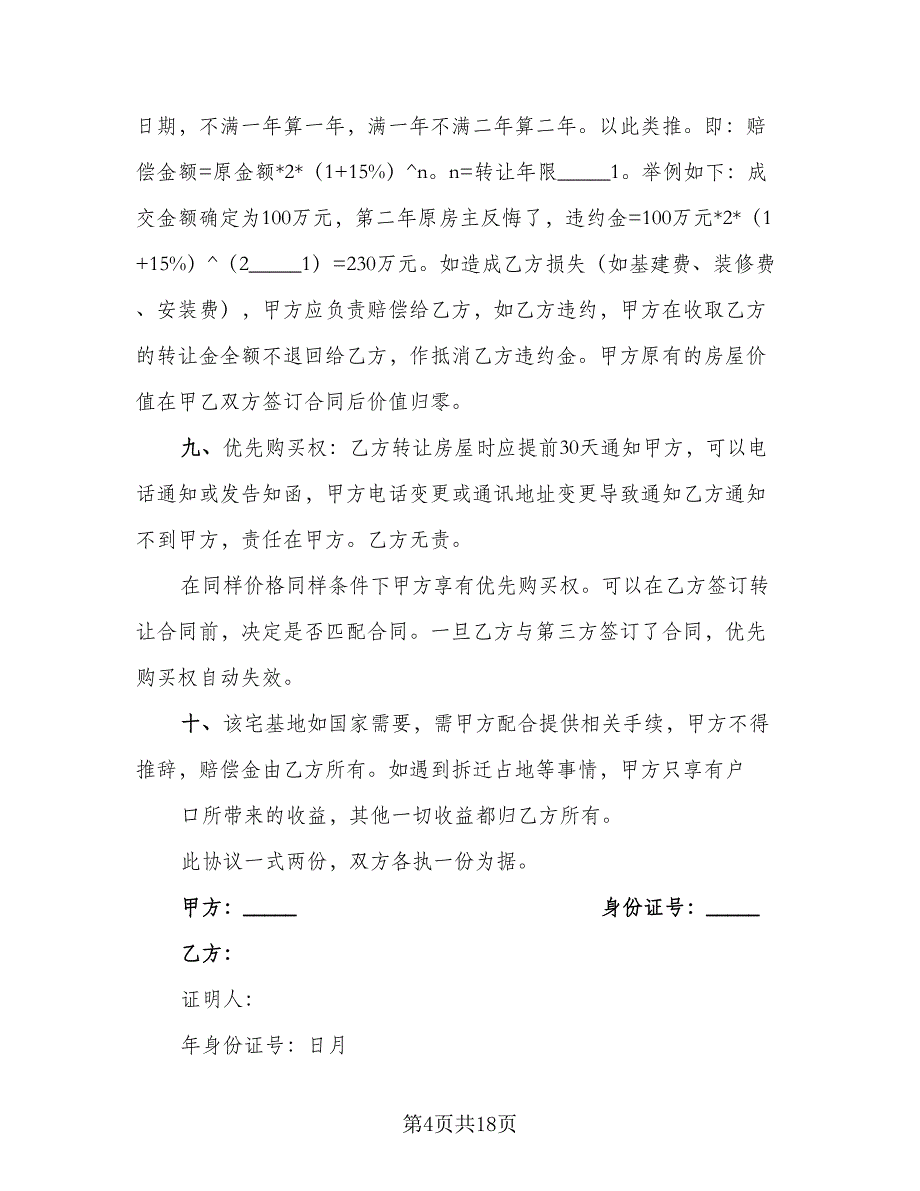 日期，不满一年算一年，满一年不满二年算二年。以此类推。即：赔
偿金额=原金额*2*（1+15%）^n。n=转让年限_____1。举例如下：成
交金额确定为100万元，第二年原房主反悔了，违约金=100万元*2*（1
+15%）^（2_____1）=230万元。如造成乙方损失（如基建费、装修费
、安装费），甲方应负责赔偿给乙方，如乙方违约，甲方在收取乙方
的转让金全额不退回给乙方，作抵消乙方违约金。甲方原有的房屋价
值在甲乙双方签订合同后价值归零。
九、优先购买权：乙方转让房屋时应提前30天通知甲方，可以电
话通知或发告知函，甲方电话变更或通讯地址变更导致通知乙方通知
不到甲方，责任在甲方。乙方无责。
在同样价格同样条件下甲方享有优先购买权。可以在乙方签订转
让合同前，决定是否匹配合同。一旦乙方与第三方签订了合同，优先
购买权自动失效。
十、该宅基地如国家需要，需甲方配合提供相关手续，甲方不得
推辞，赔偿金由乙方所有。如遇到拆迁占地等事情，甲方只享有户
口所带来的收益，其他一切收益都归乙方所有。
此协议一式两份，双方各执一份为据。
甲方：_____ 身份证号：_____
乙方：
证明人：
年身份证号：日月
第4页共18页